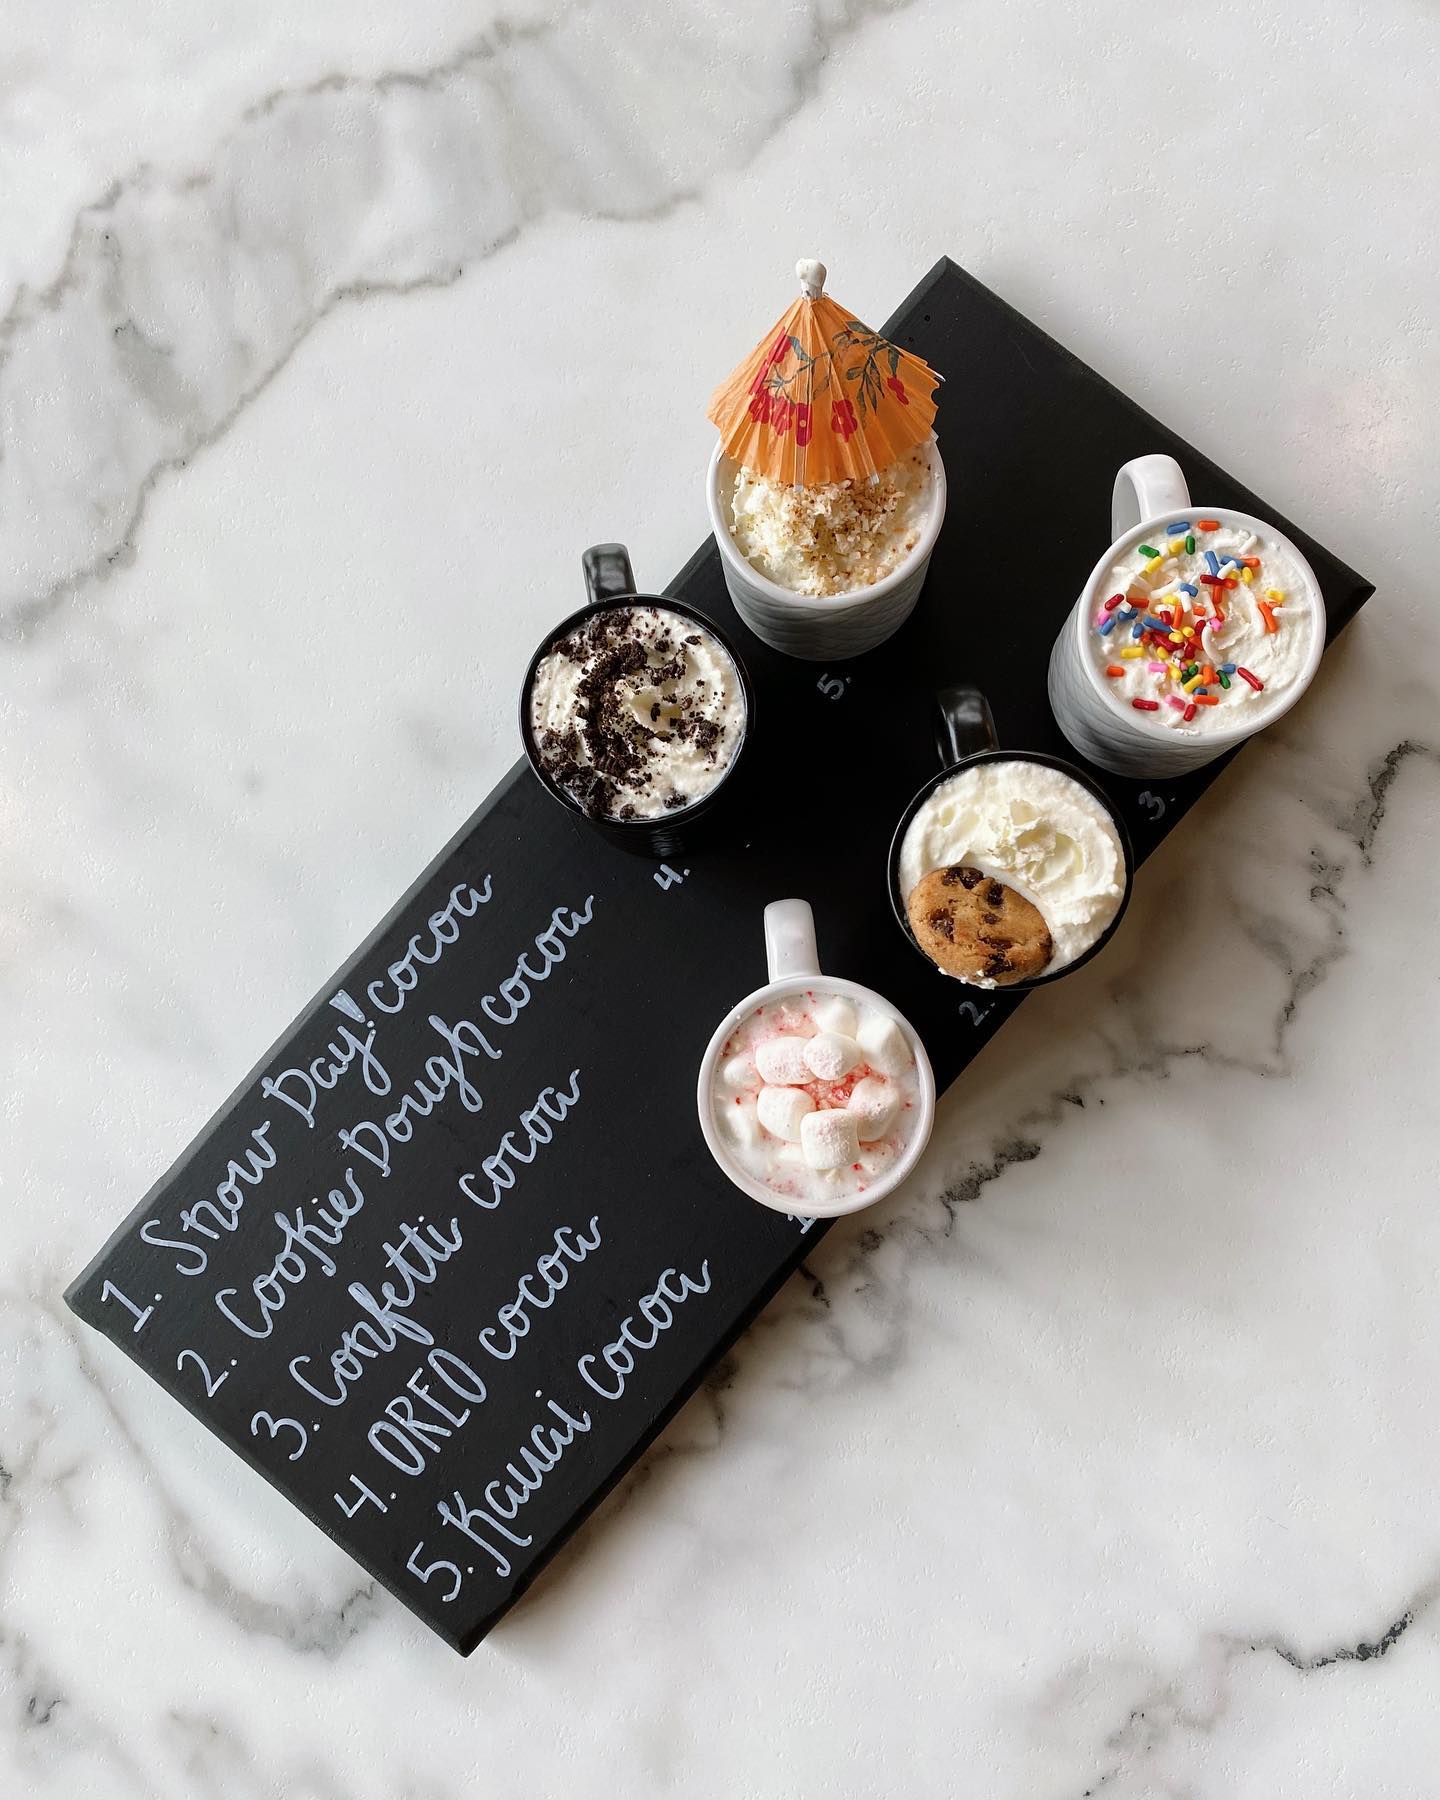 1. Snow Day! cocoa
2. Cookie Dough cocoa
3. Confetti cocoa
4. OREO cocoa
5. Kauai cocoa
5.
3.
4.
2.
1.